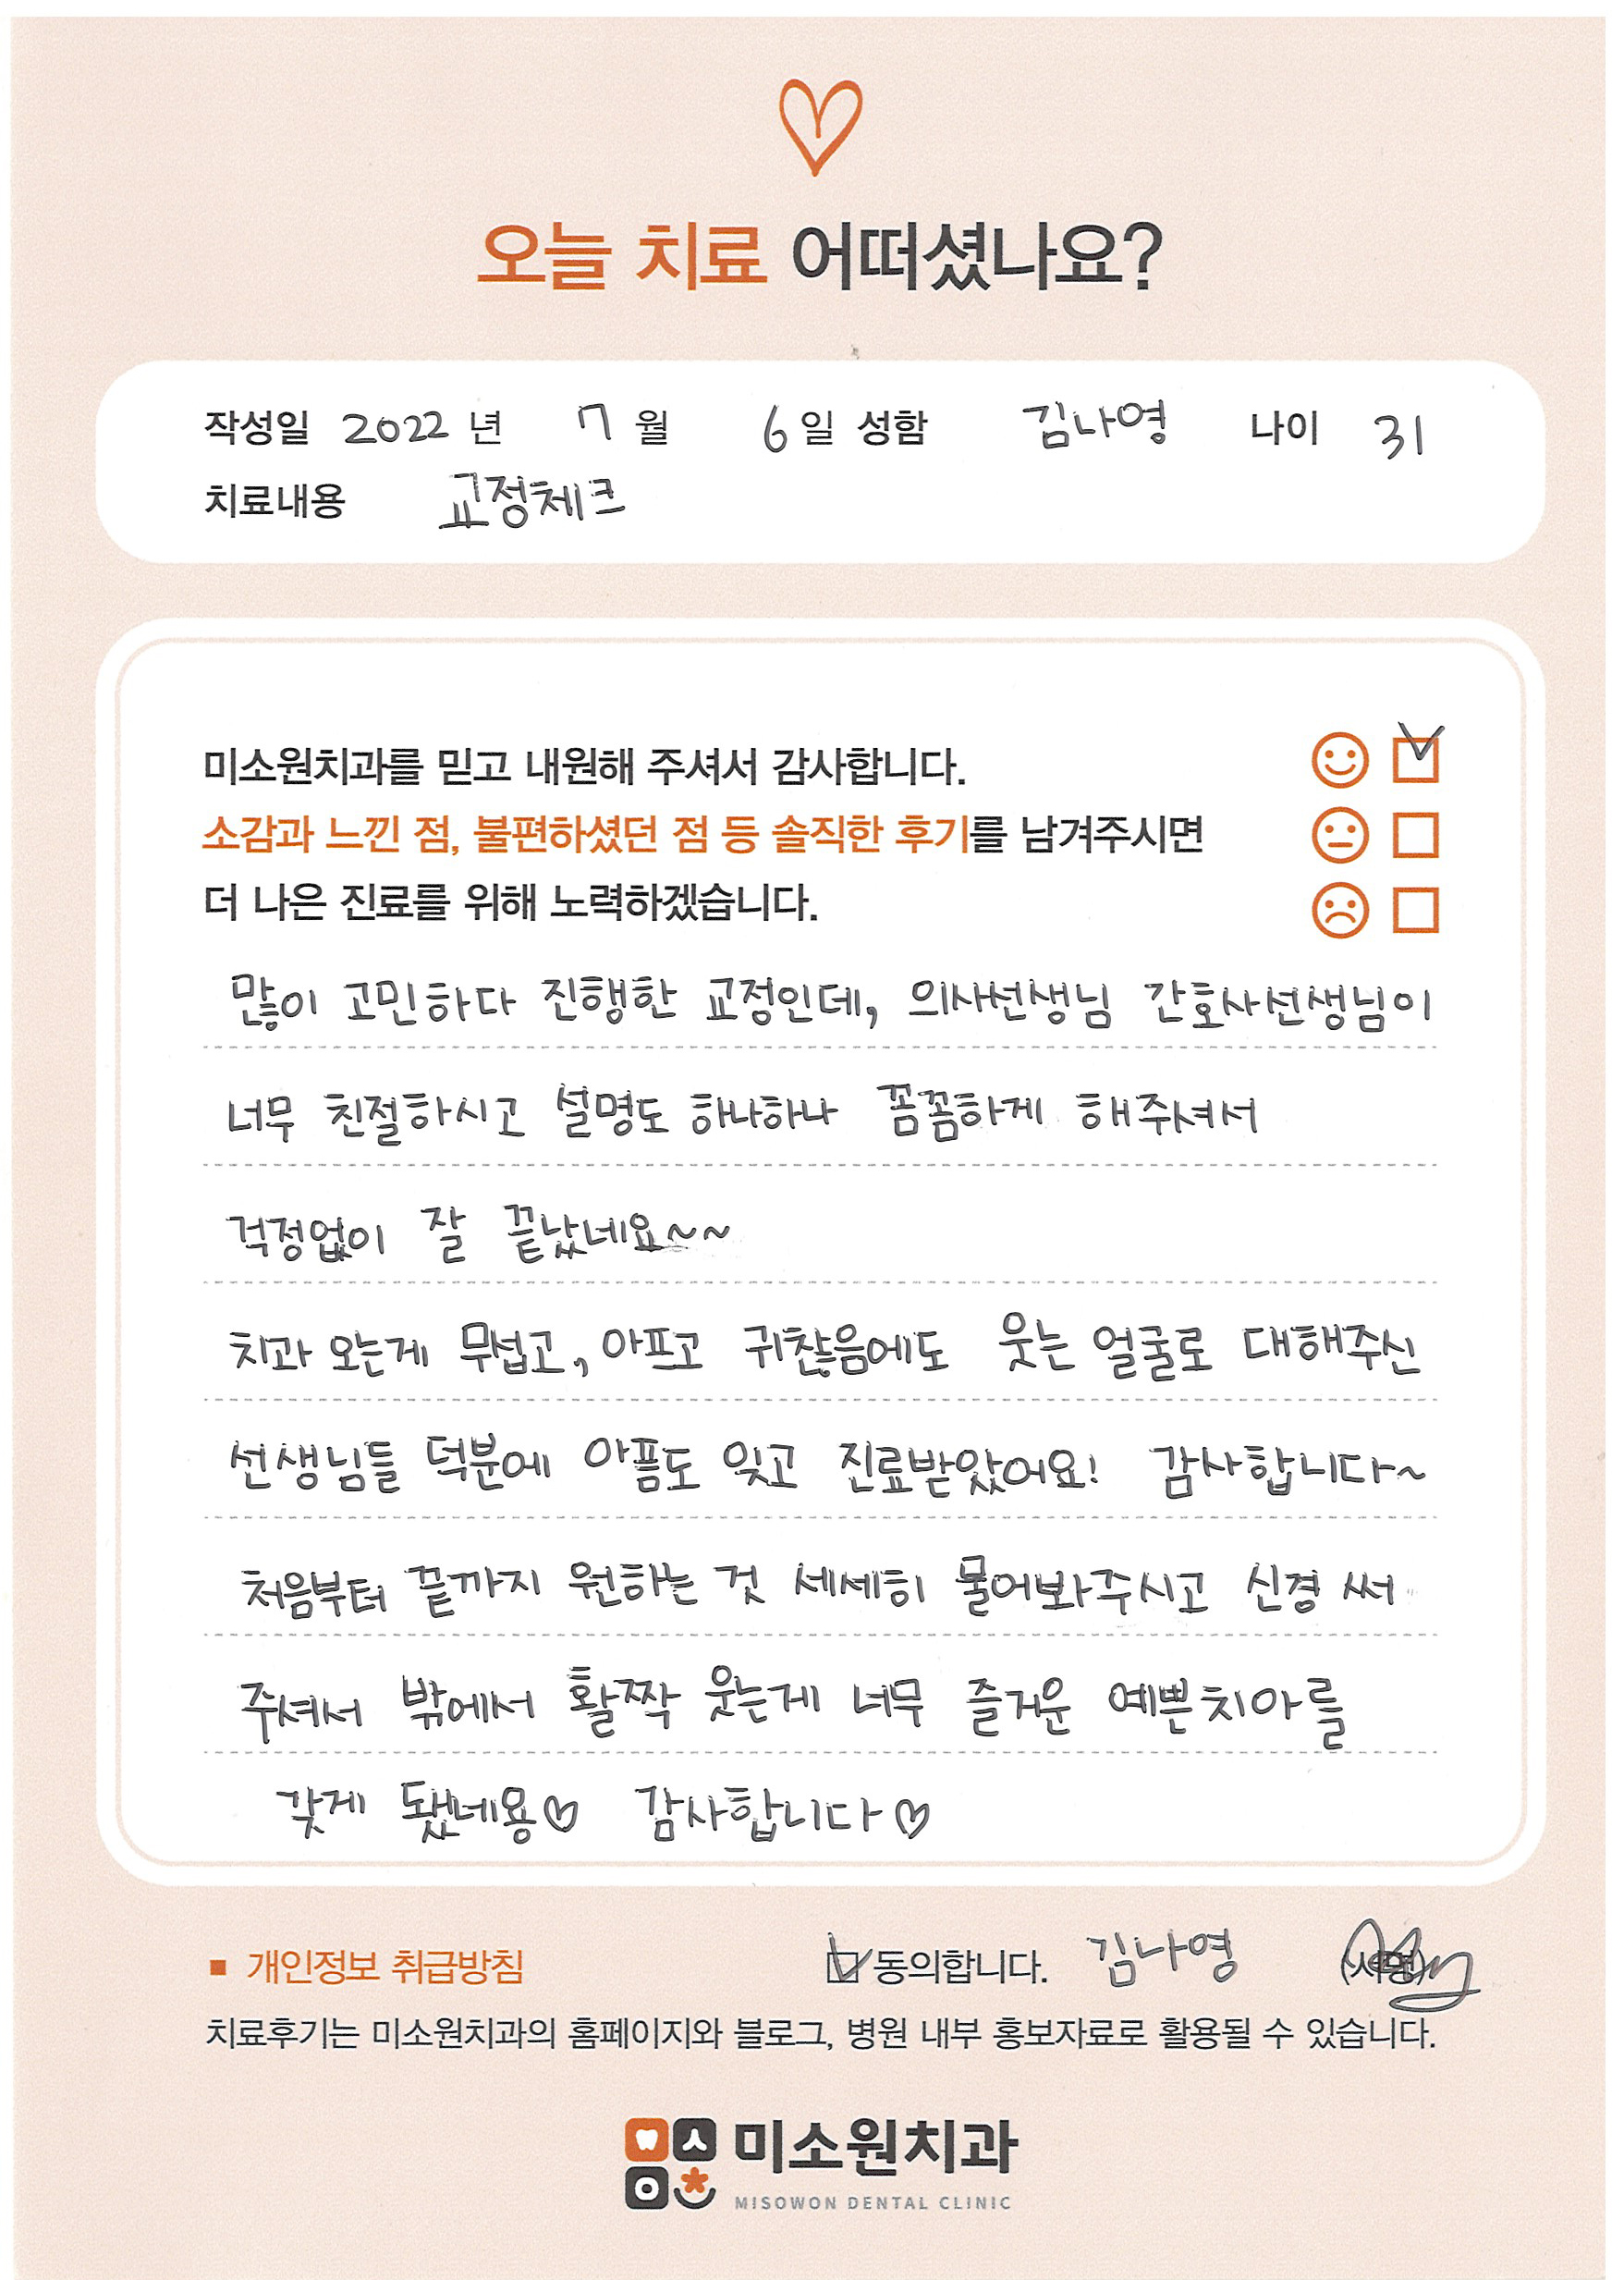 오늘 치료 어떠셨나요?
작성일 2022 년 7 월 6 일 성함 김나영 나이 31
치료내용 교정체크
미소원치과를 믿고 내원해 주셔서 감사합니다.
소감과 느낀 점, 불편하셨던 점 등 솔직한 후기를 남겨주시면
더 나은 진료를 위해 노력하겠습니다.
많이 고민하다 진행한 교정인데, 의사선생님 간호사선생님이
너무 친절하시고 설명도 하나하나 꼼꼼하게 해주셔서
걱정없이 잘 끝났네요~~
치과 오는게 무섭고, 아프고 귀찮음에도 웃는 얼굴로 대해주신
선생님들 덕분에 아픔도 잊고 진료받았어요! 감사합니다~
처음부터 끝까지 원하는 것 세세히 물어봐주시고 신경 써
주셔서 밖에서 활짝 웃는게 너무 즐거운 예쁜치아를
갖게 됐네용♡ 감사합니다♡
■ 개인정보 취급방침 동의합니다. 김나영 (서명)
치료후기는 미소원치과의 홈페이지와 블로그, 병원 내부 홍보자료로 활용될 수 있습니다.
미소원치과
MISOWON DENTAL CLINIC